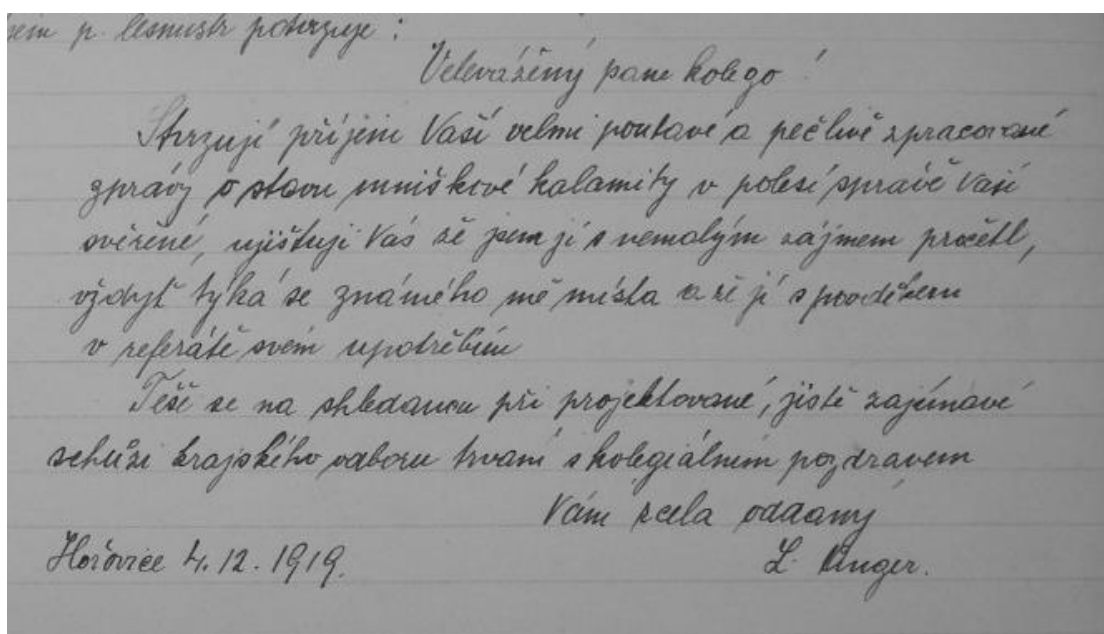 sem p. lesmistr potvrzuje :
Velevážený pane kolego !
Stvrzuji příjem Vaší velmi poutavé a pečlivě zpracované
zprávy o stavu mniškové kalamity v polesí správě Vaší
svěřené, ujištuji Vás že jsem ji s nemalým zájmem pročetl,
vždyť týká se známého mě místa a že ji s povděkem
v referátě svém upotřebím
Těše se na shledanou při projektované, jistě zajímavé
schůzi krajského odboru trvám s kolegiálním pozdravem
Vám zcela oddaný
Hořovice 4.12.1919.
L. Unger.